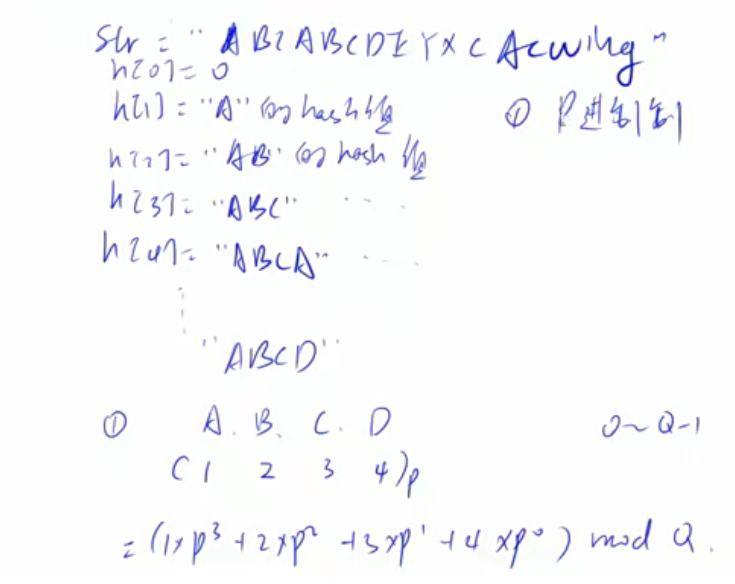 Str = "ABCABCDEYXCAcwing"
h[0] = 0
h[1] = "A" 的 hash 值 ① P进制
h[2] = "AB" 的 hash 值
h[3] = "ABC" ......
h[4] = "ABCA" ......
"ABCD"
① A. B. C. D 0~Q-1
(1 2 3 4)p
= (1×p³ + 2×p² + 3×p¹ + 4×p⁰) mod Q.